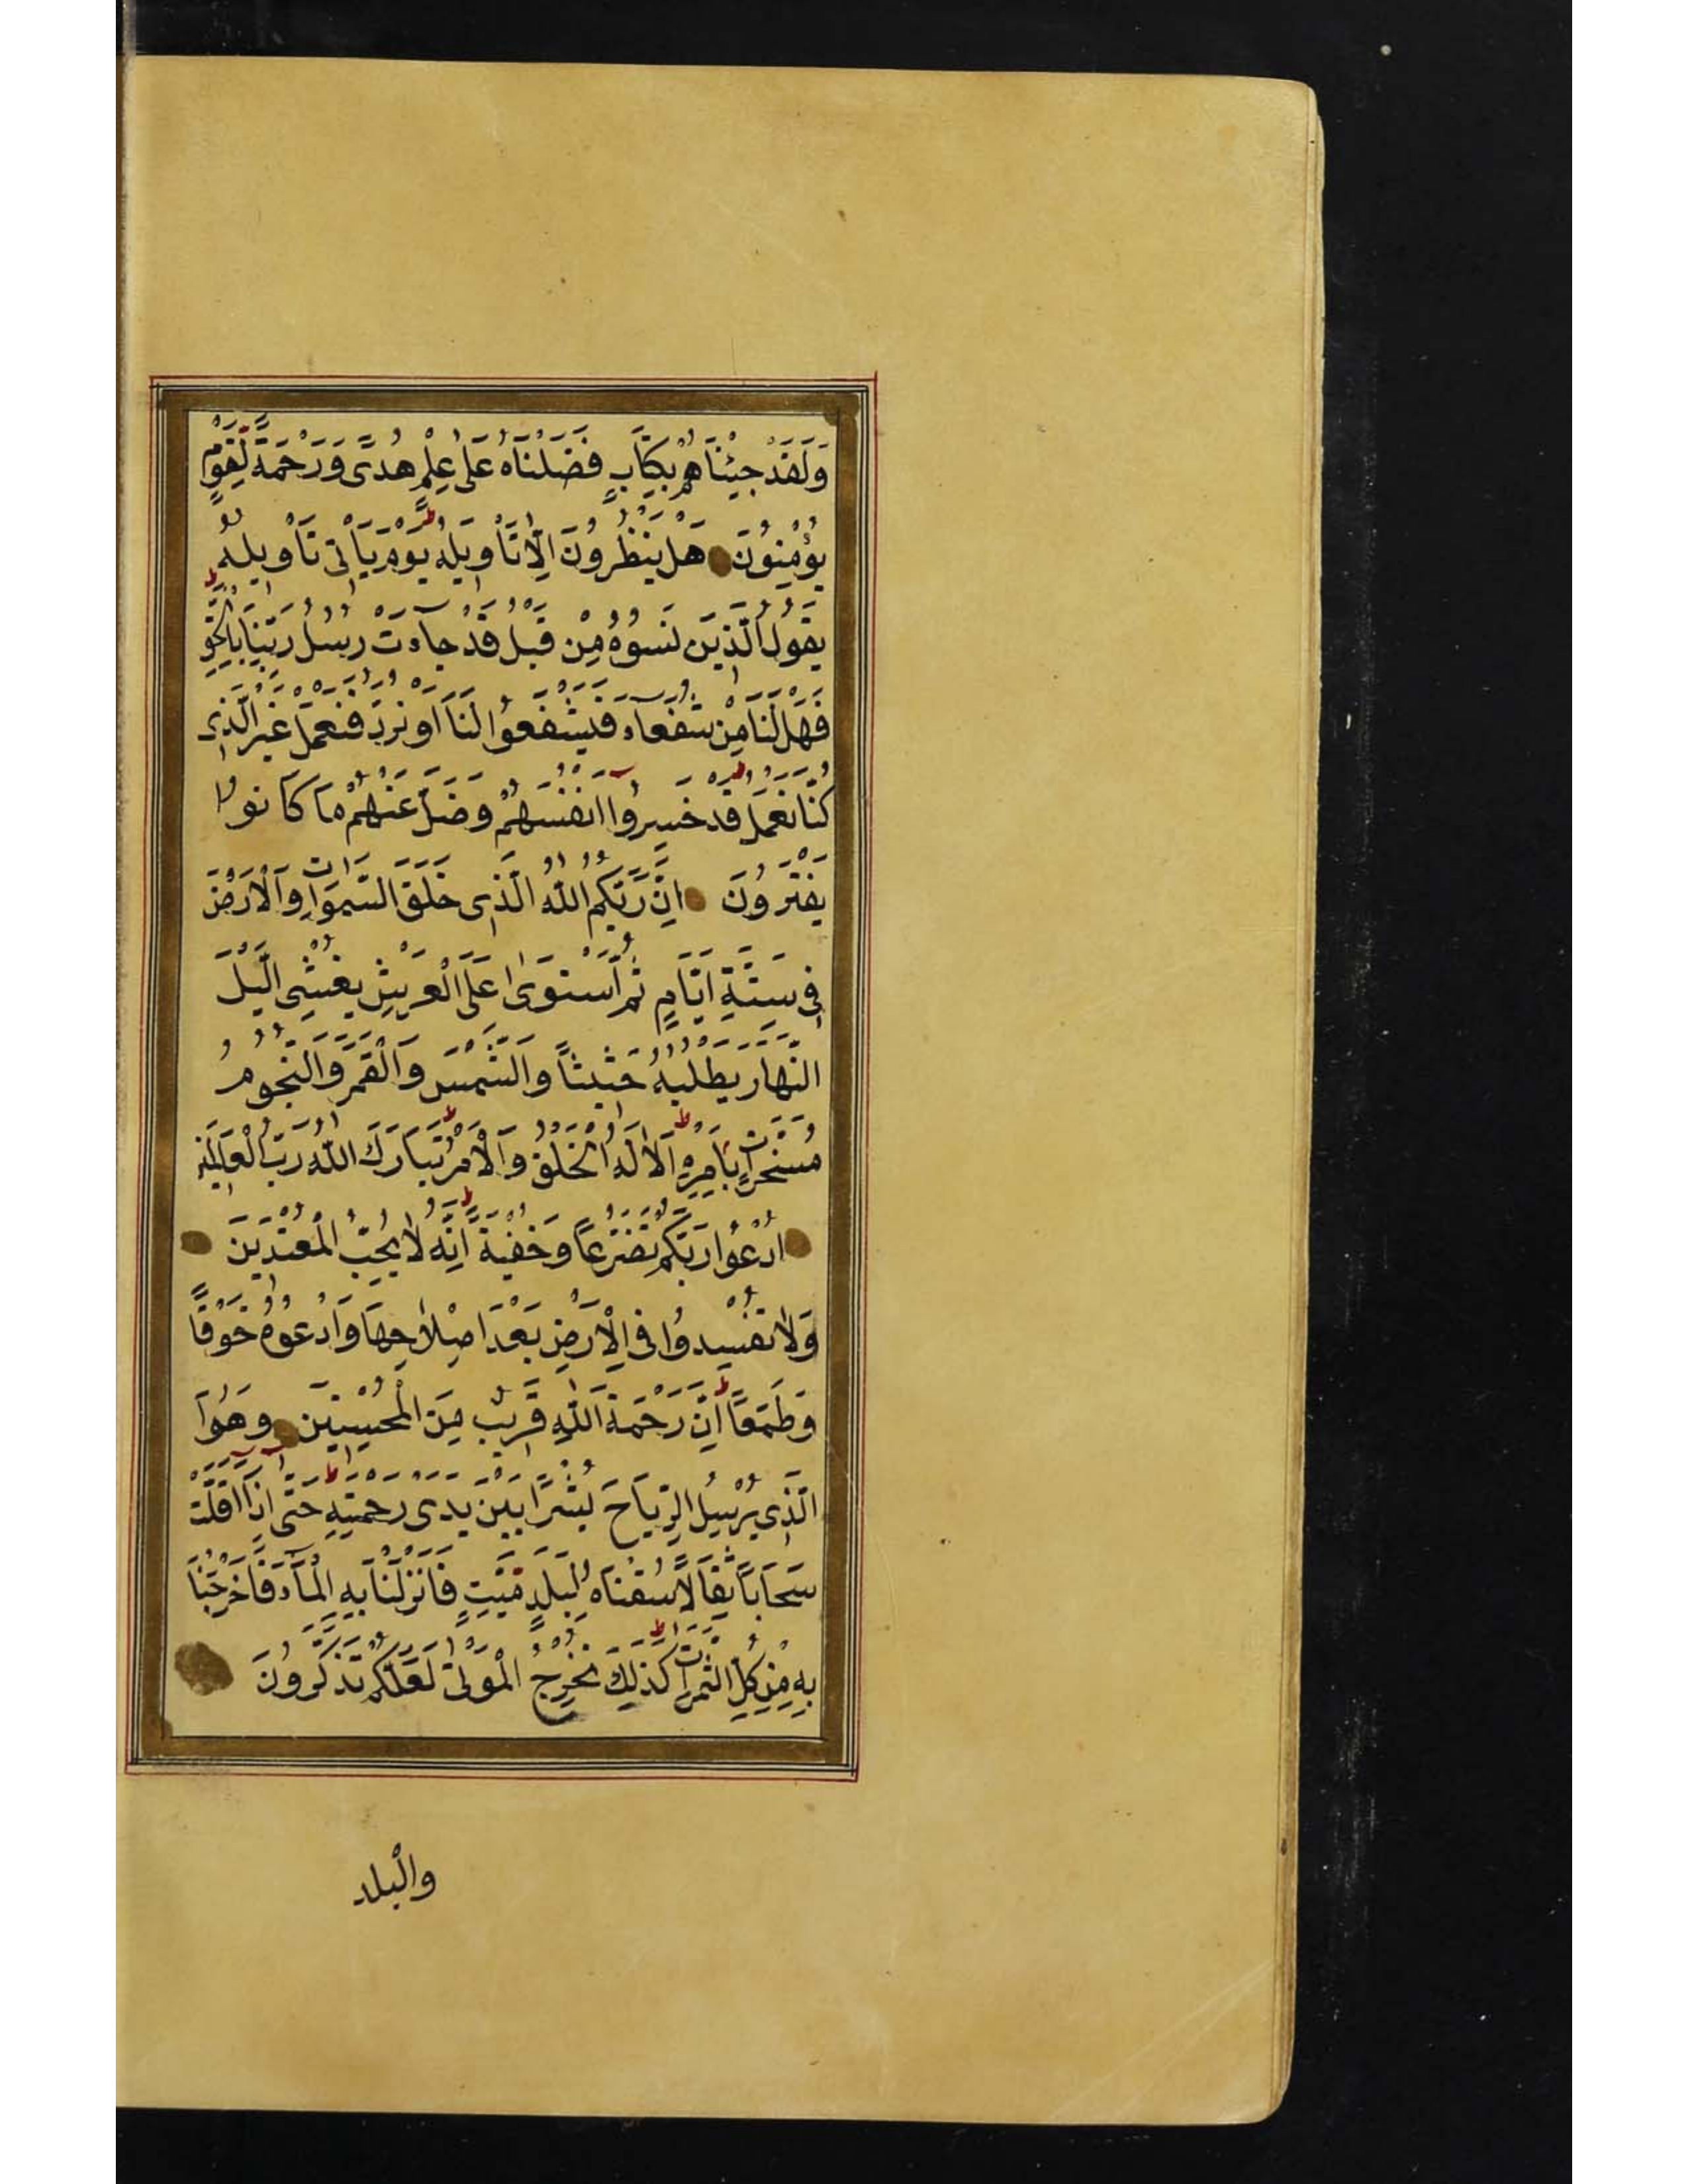 وَلَقَدْ جِئْنَاهُمْ بِكِتَابٍ فَصَّلْنَاهُ عَلٰى عِلْمٍ هُدًى وَرَحْمَةً لِقَوْمٍ
يُؤْمِنُونَ هَلْ يَنْظُرُونَ اِلَّا تَأْوِيلَهُ يَوْمَ يَأْتِى تَأْوِيلُهُ
يَقُولُ الَّذِينَ نَسُوهُ مِنْ قَبْلُ قَدْ جَآءَتْ رُسُلُ رَبِّنَا بِالْحَقِّ
فَهَلْ لَنَا مِنْ شُفَعَآءَ فَيَشْفَعُوا لَنَا اَوْ نُرَدُّ فَنَعْمَلَ غَيْرَ الَّذِى
كُنَّا نَعْمَلُ قَدْ خَسِرُوا اَنْفُسَهُمْ وَضَلَّ عَنْهُمْ مَا كَانُوا
يَفْتَرُونَ اِنَّ رَبَّكُمُ اللّٰهُ الَّذِى خَلَقَ السَّمٰوَاتِ وَالْاَرْضَ
فِى سِتَّةِ اَيَّامٍ ثُمَّ اسْتَوٰى عَلَى الْعَرْشِ يُغْشِى الَّيْلَ
النَّهَارَ يَطْلُبُهُ حَثِيثًا وَالشَّمْسَ وَالْقَمَرَ وَالنُّجُومَ
مُسَخَّرَاتٍ بِاَمْرِهِ اَلَا لَهُ الْخَلْقُ وَالْاَمْرُ تَبَارَكَ اللّٰهُ رَبُّ الْعَالَمِينَ
اُدْعُوا رَبَّكُمْ تَضَرُّعًا وَخُفْيَةً اِنَّهُ لَا يُحِبُّ الْمُعْتَدِينَ
وَلَا تُفْسِدُوا فِى الْاَرْضِ بَعْدَ اِصْلَاحِهَا وَادْعُوهُ خَوْفًا
وَطَمَعًا اِنَّ رَحْمَةَ اللّٰهِ قَرِيبٌ مِنَ الْمُحْسِنِينَ وَهُوَا
الَّذِى يُرْسِلُ الرِّيَاحَ بُشْرًا بَيْنَ يَدَىْ رَحْمَتِهِ حَتّٰى اِذَا اَقَلَّتْ
سَحَابًا ثِقَالًا سُقْنَاهُ لِبَلَدٍ مَيِّتٍ فَاَنْزَلْنَا بِهِ الْمَآءَ فَاَخْرَجْنَا
بِهِ مِنْ كُلِّ الثَّمَرَاتِ كَذٰلِكَ نُخْرِجُ الْمَوْتٰى لَعَلَّكُمْ تَذَكَّرُونَ
والْبلد